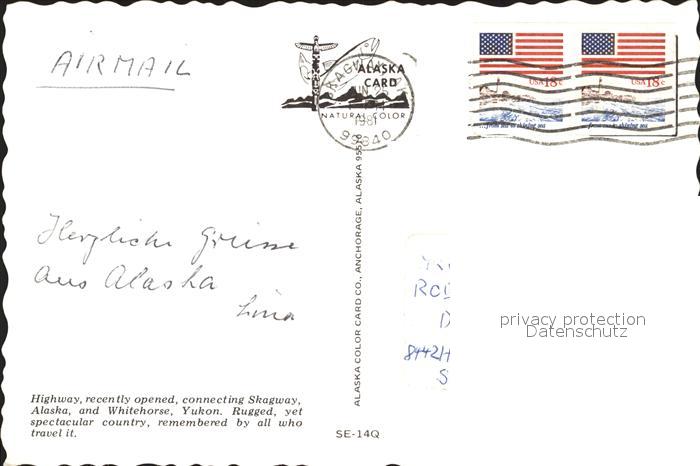 AIRMAIL
ALASKA
CARD
NATURAL COLOR
SKAGWAY
JUN
1981
99840
USA18c
USA18c
...from sea to shining sea
...from sea to shining sea
Herzliche Grüsse
aus Alaska
Lina
ALASKA COLOR CARD CO., ANCHORAGE, ALASKA 99510
8442/H
S
privacy protection
Datenschutz
Highway, recently opened, connecting Skagway,
Alaska, and Whitehorse, Yukon. Rugged, yet
spectacular country, remembered by all who
travel it.
SE-14Q